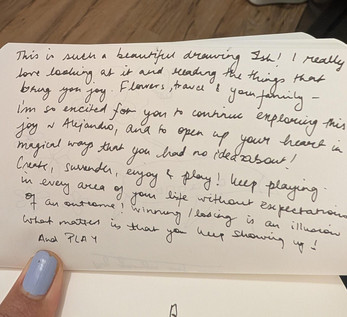 This is such a beautiful drawing Ish! I really
love looking at it and reading the things that
bring you joy. Flowers, travel & your family –
I'm so excited for you to continue exploring this
joy w Alejandro, and to open up your heart in
magical ways that you had no idea about!
Create, surrender, enjoy & play! Keep playing
in every area of your life without expectations
of an outcome! Winning/losing is an illusion
What matters is that you keep showing up!
And PLAY